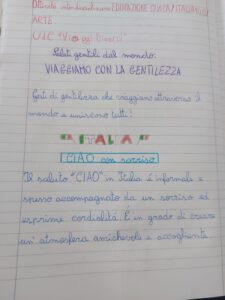 Attività interdisciplinare EDUCAZIONE CIVICA/ITALIANO/
ARTE.
U.d.C "Vi
Gesti gentili dal mondo:
VIAGGIAMO CON LA GENTILEZZA
Gesti di gentilezza che viaggiano attraverso il
mondo e uniscono tutti!
ITALIA
CIAO con sorriso
Il saluto "CIAO" in Italia è informale e
spesso accompagnato da un sorriso ed
esprime cordialità. È in grado di creare
un' atmosfera amichevole e accogliente